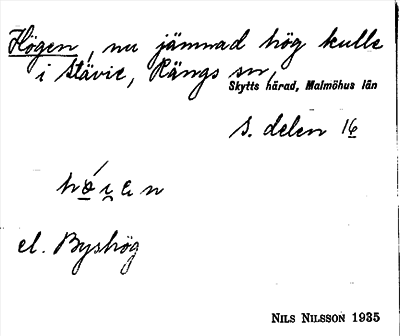 Högen, nu jämnad hög kulle
i Stävie, Rängs sn,
Skytts härad, Malmöhus län
S. delen 16
hǿ̱i̯en
el. Byshög
NILS NILSSON 1935